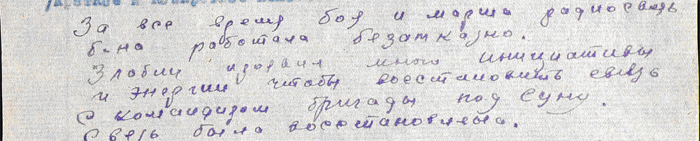 За все время боя и марша радиосвязь
б-на работала безотказно.
Злобин проявил много инициативы
и энергии чтобы восстановить связь
с командиром бригады под Суну.
Связь была восстановлена.